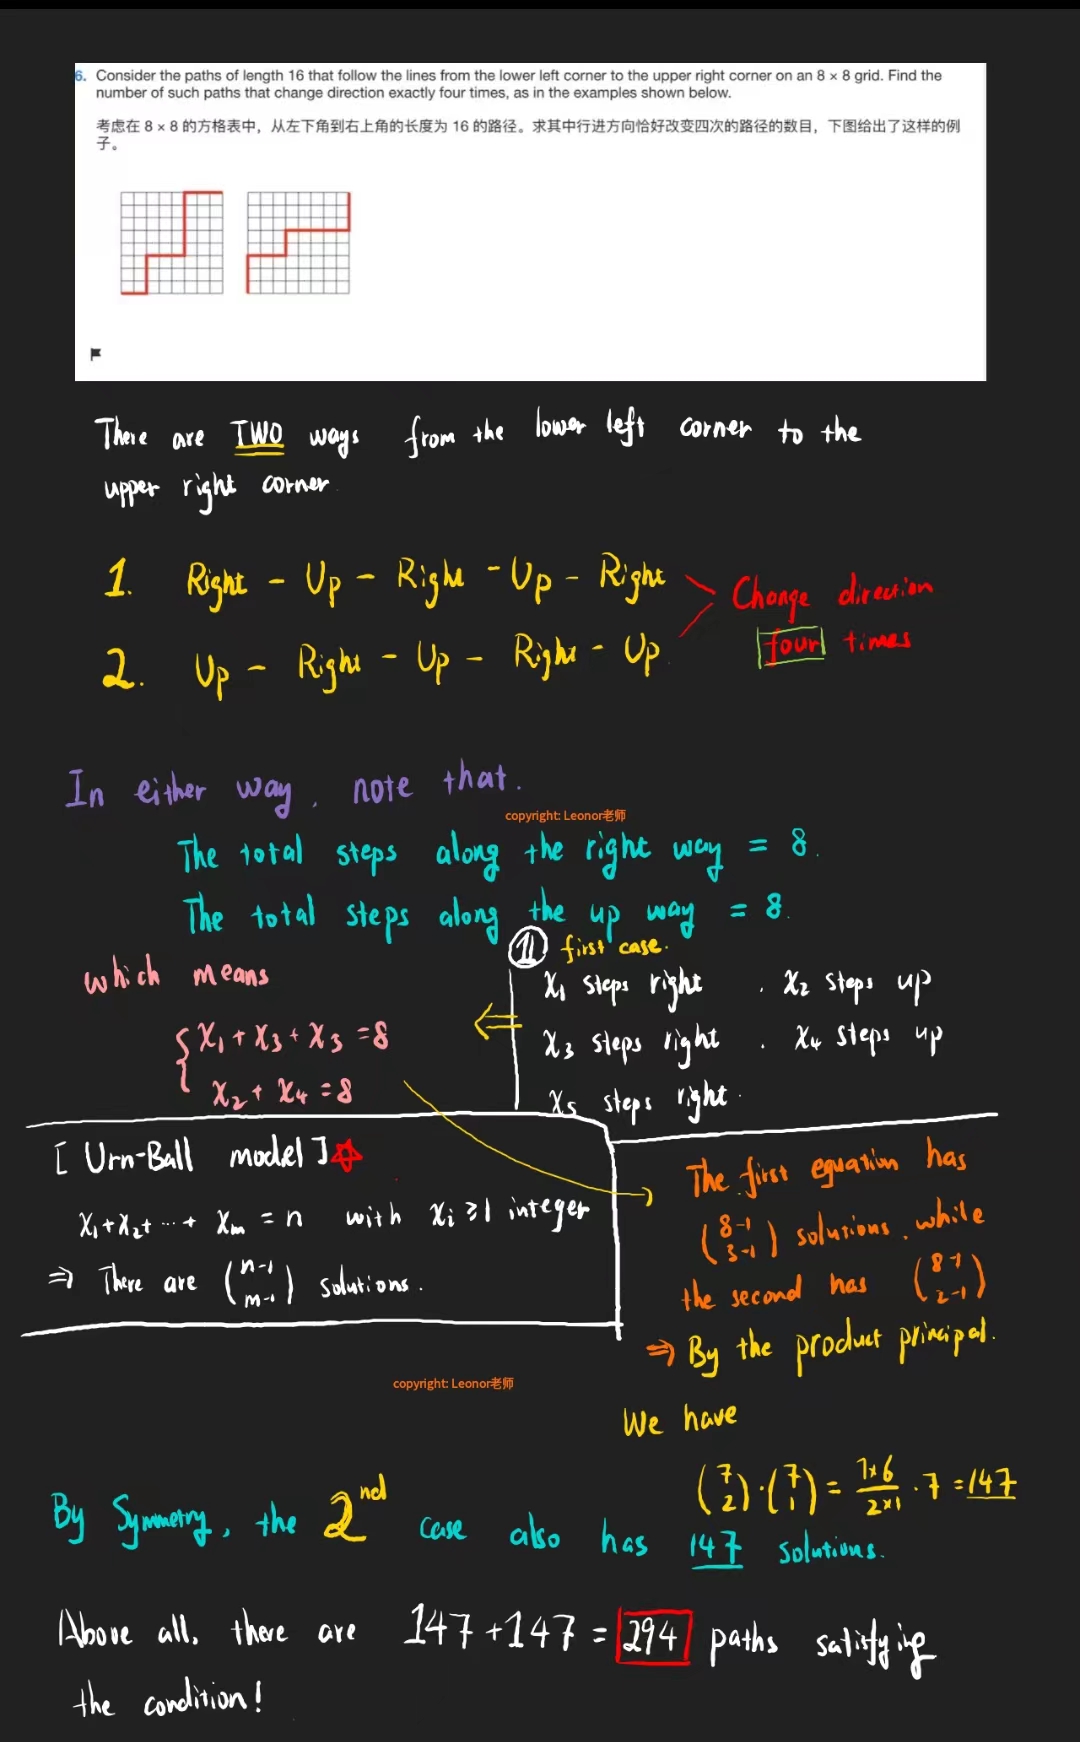 6. Consider the paths of length 16 that follow the lines from the lower left corner to the upper right corner on an 8 × 8 grid. Find the
number of such paths that change direction exactly four times, as in the examples shown below.
考虑在 8 × 8 的方格表中，从左下角到右上角的长度为 16 的路径。求其中行进方向恰好改变四次的路径的数目，下图给出了这样的例
子。
There are TWO ways from the lower left corner to the
upper right corner
1. Right - Up - Right - Up - Right
2. Up - Right - Up - Right - Up
Change direction
four times
In either way, note that.
copyright: Leonor老师
The total steps along the right way = 8.
The total steps along the up way = 8.
which means
{ x₁ + x₃ + x₃ = 8
x₂ + x₄ = 8
① first case.
x₁ steps right . x₂ steps up
x₃ steps right . x₄ steps up
x₅ steps right.
⇐
[Urn-Ball model] ☆
x₁+x₂+ ··· + xₘ = n with xᵢ ≥ 1 integer
⇒ There are (n-1 m-1) solutions.
The first equation has
(8-1 3-1) solutions, while
the second has (8-1 2-1)
⇒ By the product principal.
We have
(7 2)·(7 1) = 7×6 / 2×1 · 7 = 147
copyright: Leonor老师
By Symmetry, the 2nd case also has 147 solutions.
Above all, there are 147 + 147 = 294 paths satisfying
the condition!